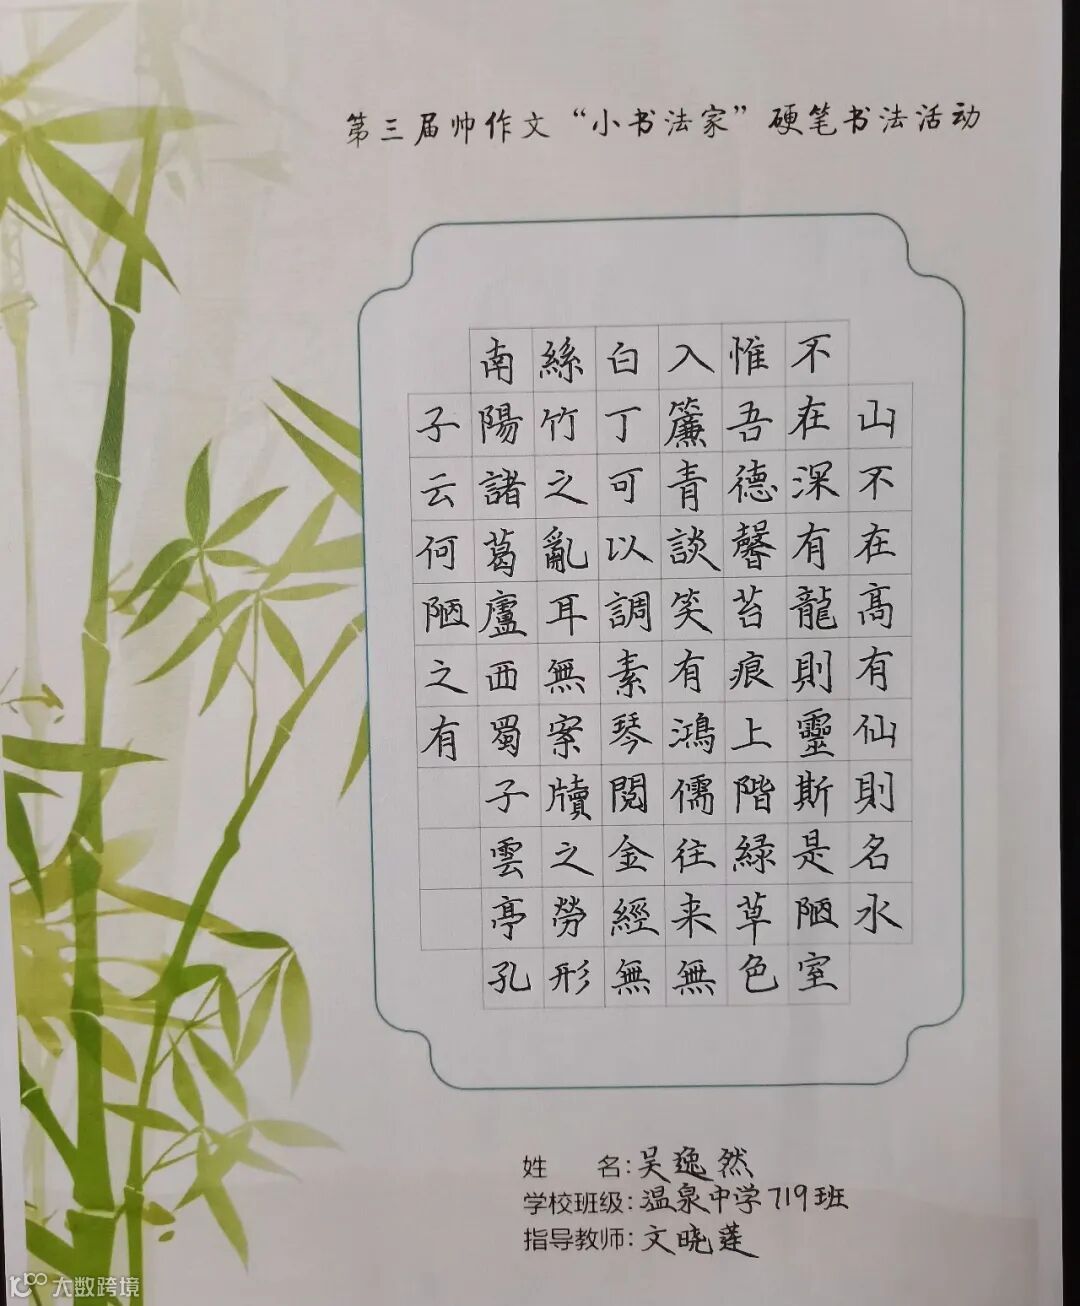 第三届帅作文“小书法家”硬笔书法活动
山不在高有仙則名水
不在深有龍則靈斯是陋室
惟吾德馨苔痕上階緑草色
入簾青談笑有鴻儒往来無
白丁可以調素琴閱金經無
絲竹之亂耳無案牘之勞形
南陽諸葛廬西蜀子雲亭孔
子云何陋之有
姓 名：吴逸然
学校班级：温泉中学719班
指导教师：文晓莲
大数跨境